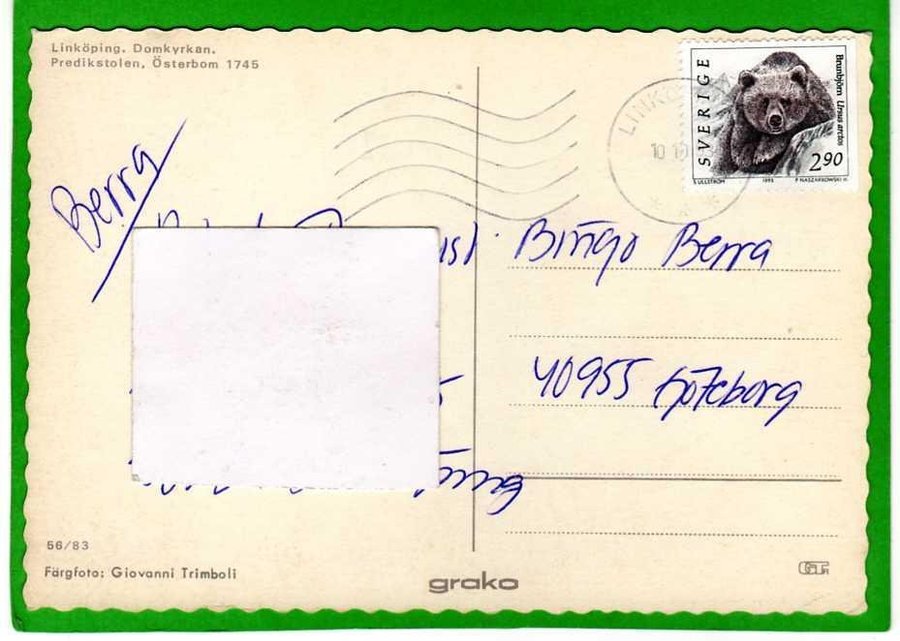 Linköping. Domkyrkan.
Predikstolen, Österbom 1745
Berra
Bingo Berra
40955 Göteborg
SVERIGE
Brunbjörn Ursus arctos
2.90
S ULLSTRÖM 1993 P NASZARKOWSKI SC
LINKÖPING
56/83
Färgfoto: Giovanni Trimboli
grako